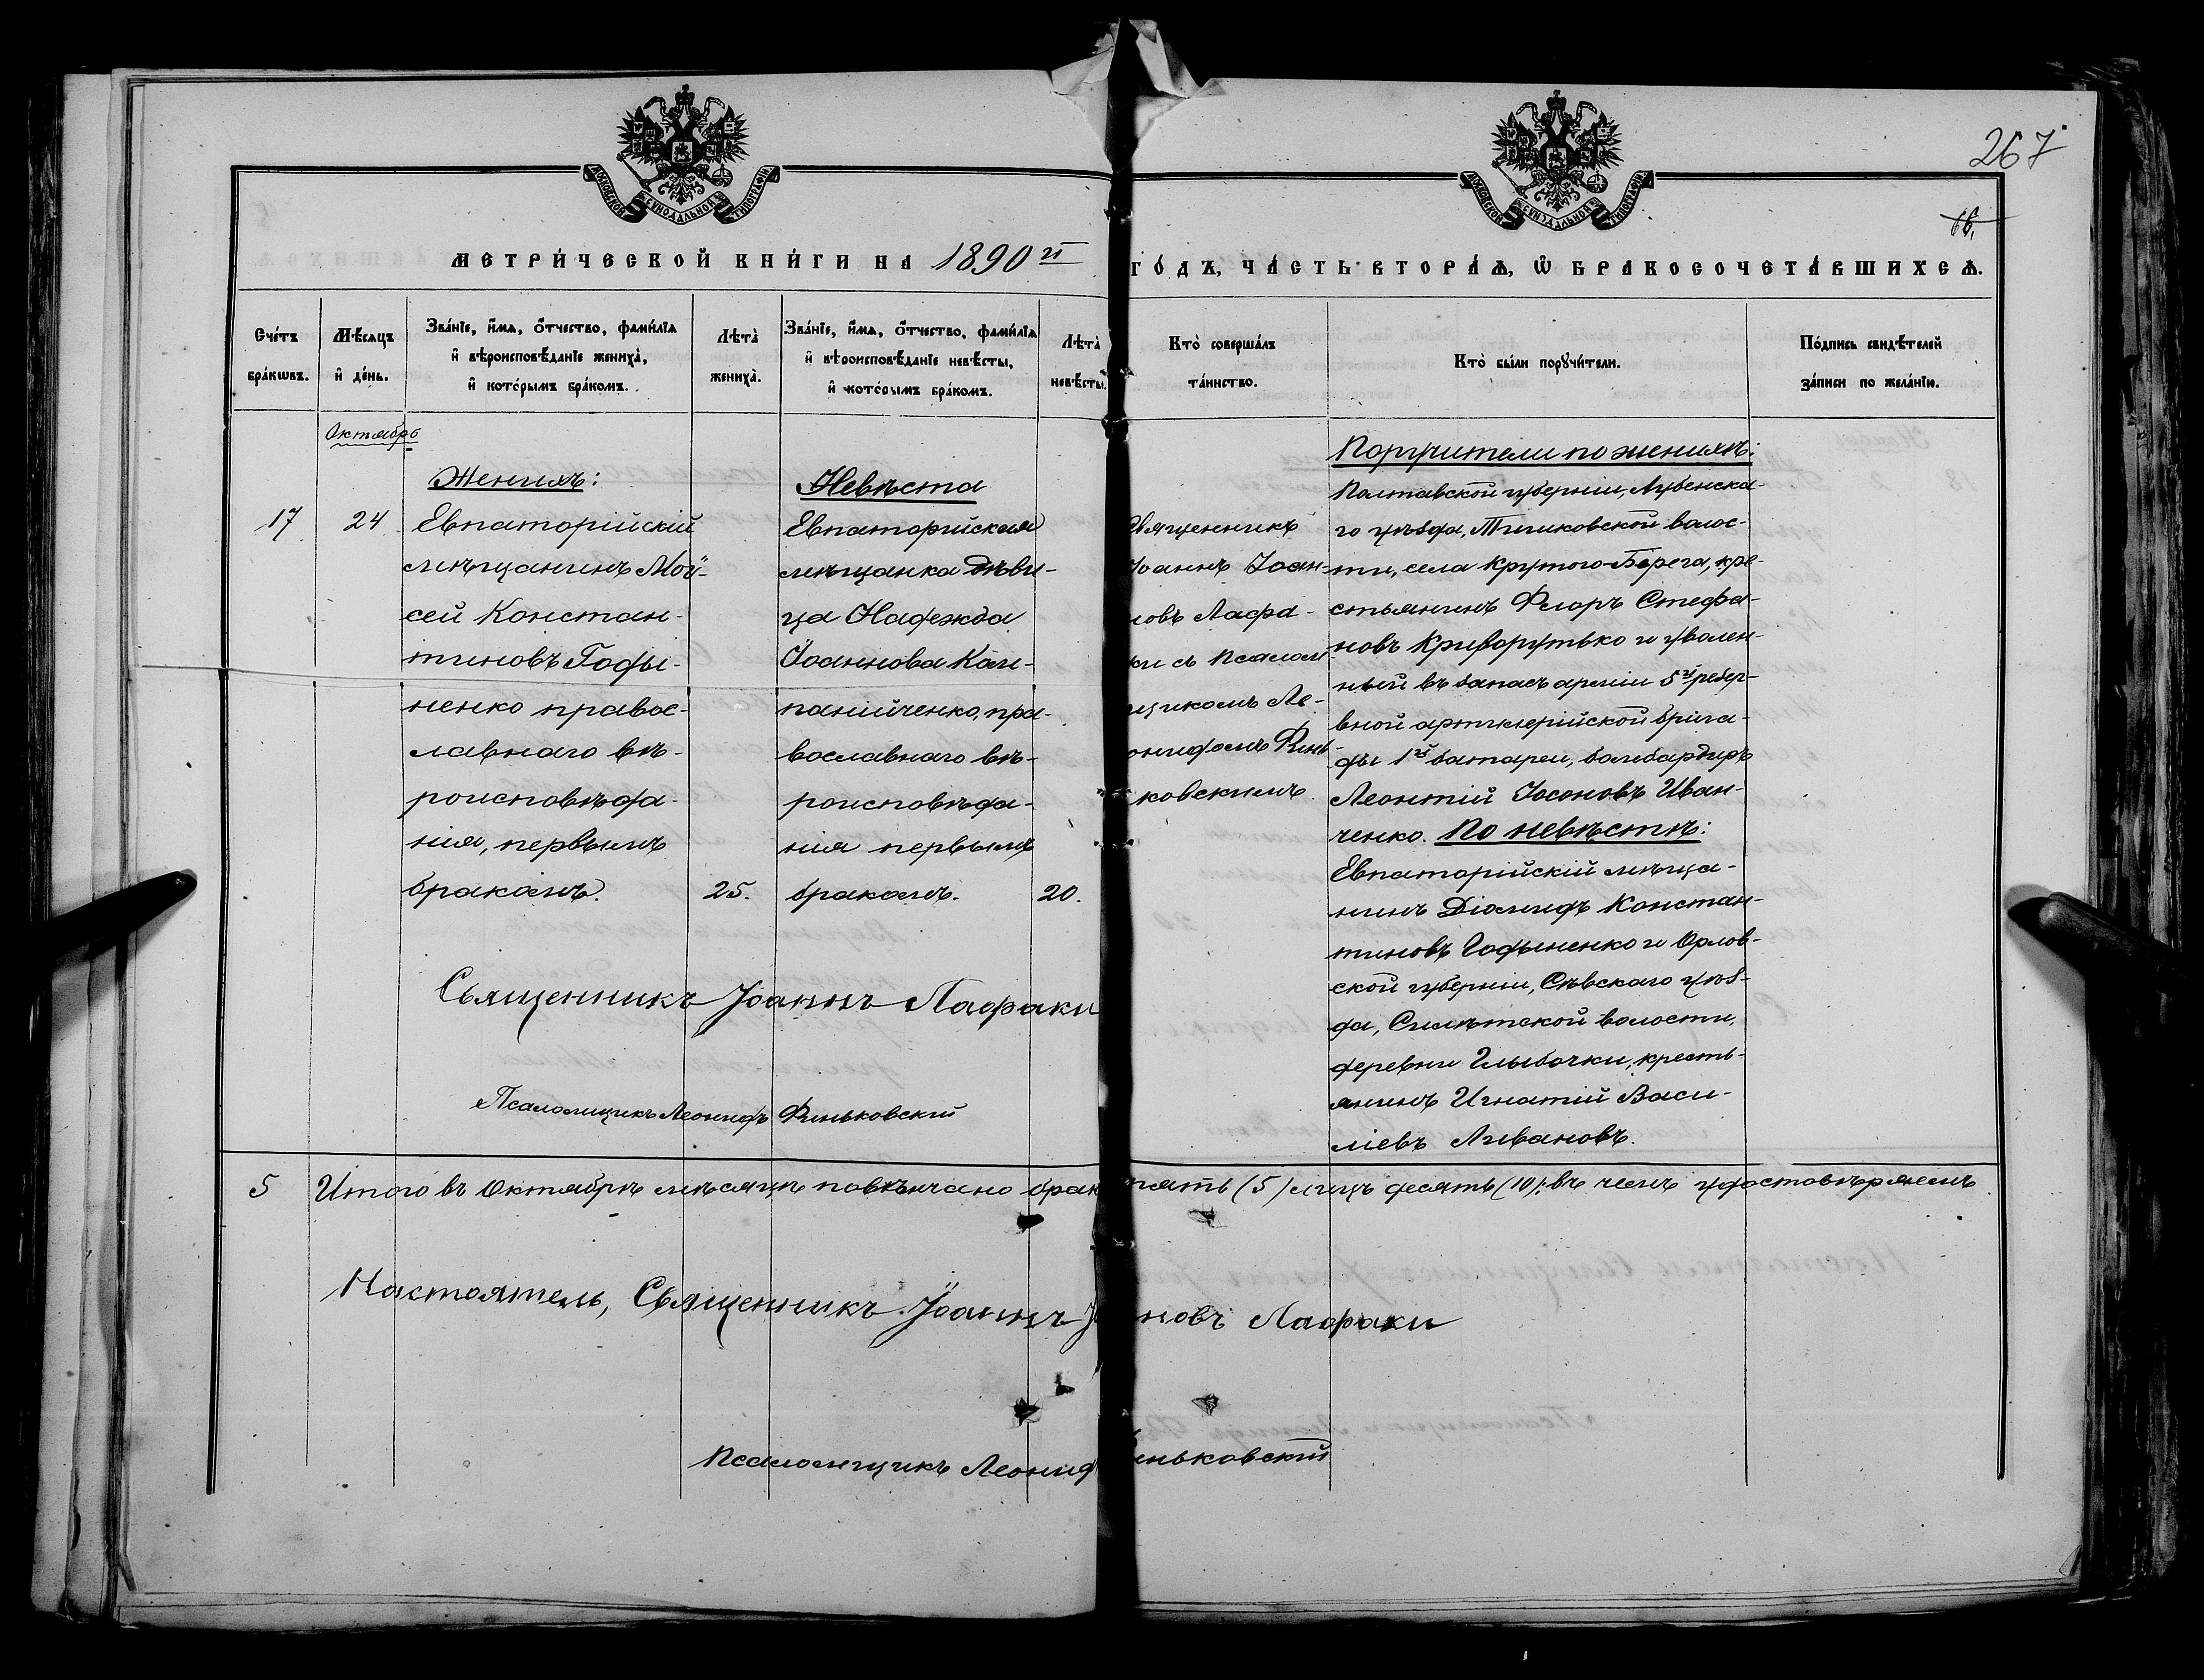 267
16,
МОСКОВСКОЙ СѴНОДАЛЬНОЙ ТИПОГРАФІИ
МОСКОВСКОЙ СѴНОДАЛЬНОЙ ТИПОГРАФІИ
МЕТРИ́ЧЕСКОЙ КНИ́ГИ НА 1890й ГО́ДЪ, ЧА́СТЬ ВТОРА́Ѧ, Ѽ БРАКОСОЧЕТА́ВШИХСѦ.
Сче́тъ бра́кѡвъ.
Мѣ́сяцъ и҆ де́нь.
Зва́нїе, и҆́мѧ, ѻ҆́тчество, фами́лїѧ
и҆ вѣроисповѣ́данїе жениха̀,
и҆ кото́рымъ бра́комъ.
Лѣта̀ жениха̀.
Зва́нїе, и҆́мѧ, ѻ҆́тчество, фами́лїѧ
и҆ вѣроисповѣ́данїе невѣ́сты,
и҆ кото́рымъ бра́комъ.
Лѣта̀ невѣ́сты.
Кто̀ соверша́лъ та́инство.
Кто̀ бы́ли порꙋчи́тели.
По́дпись свидѣ́телей за́писи по жела́нїю.
Октябрь
17
24
Женихъ:
Евпаторійскій
мѣщанинъ Мой-
сей Констан-
тиновъ Годы-
ненко правос-
лавнаго вѣ-
роисповѣда-
нія, первымъ
бракомъ.
25.
Невѣста
Евпаторійская
мѣщанка дѣви-
ца Надежда
Іоаннова Кам-
панійченко, пра-
вославнаго вѣ-
роисповѣда-
нія первымъ
бракомъ.
20.
Священникъ
Іоаннъ Іоан-
новъ Лафа-
ки съ Псалом
щикомъ Ле-
онидомъ Финь-
ковскимъ
Поручители по женихѣ:
Полтавской губерніи, Лубенска-
го уѣзда, Тишковской волос-
ти, села Крутого-Берега, кре-
стьянинъ Флоръ Стефа-
новъ Криворутько и уволен-
ный въ запасъ арміи 5й резер-
вной артилерійской брига-
ды 1й батареи, бомбардиръ
Леонтій Іосоновъ Иван-
ченко. По невѣстѣ:
Евпаторійскій мѣща-
нинъ Діомидъ Констан-
тиновъ Годыненко и Орлов-
ской губерніи, Сѣвскаго уѣз-
да, Симѣтской волости,
деревни Глыбочки, кресть-
янинъ Игнатій Васи-
ліевъ Ливановъ.
Священникъ Іоаннъ Лафаки
Псаломщикъ Леонидъ Финьковский
5 Итого въ Октябрѣ мѣсяцѣ повѣнчано брак пять (5) лицъ десять (10); въ чемъ удостовѣряемъ
Настоятель, Священникъ Іоаннъ новъ Лафаки
Псаломщикъ Леонид иньковскій